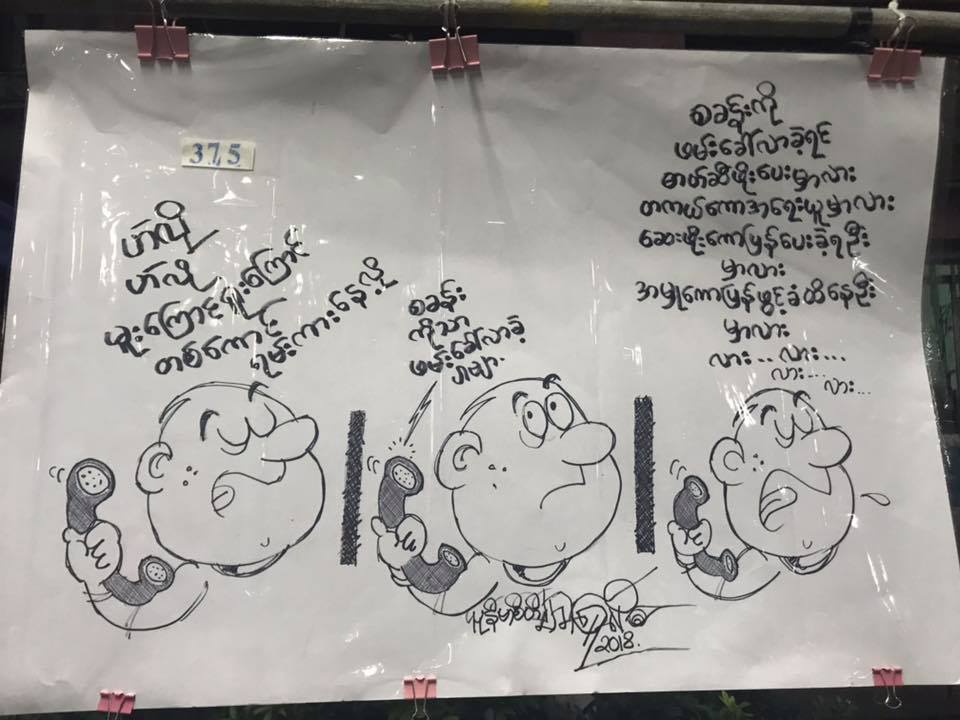 375
ဟဲလို
ဟဲလို
ယူးကြောင်ပူးကြောင်
တစ်ကောင်
ရမ်းကားနေလို့
စခန်း
ကိုသာ
ဖမ်းခေါ်လာခဲ့
ဗျာ
စခန်းကို
ဖမ်းခေါ်လာခဲ့ရင်
ဓာတ်ဆီဖိုးပေးမှာလား
တကယ်ကောအရေးယူမှာလား
ဆေးဖိုးကောပြန်ပေးခဲ့ရဦး
မှာလား
အမှုကောပြန်ဖွင့်ခံထိနေဦး
မှာလား
လား... လား...
လား...
လား...
2018.